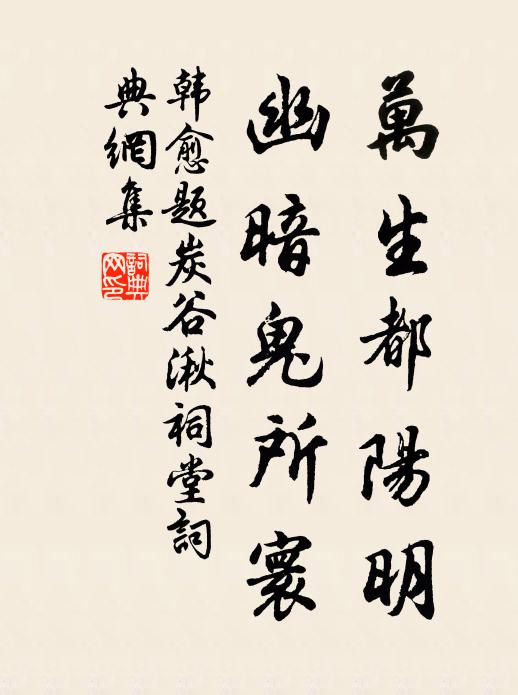 萬生都陽明
幽暗鬼所寰
韩愈题炭谷湫祠堂詞
典網集
詞典网印